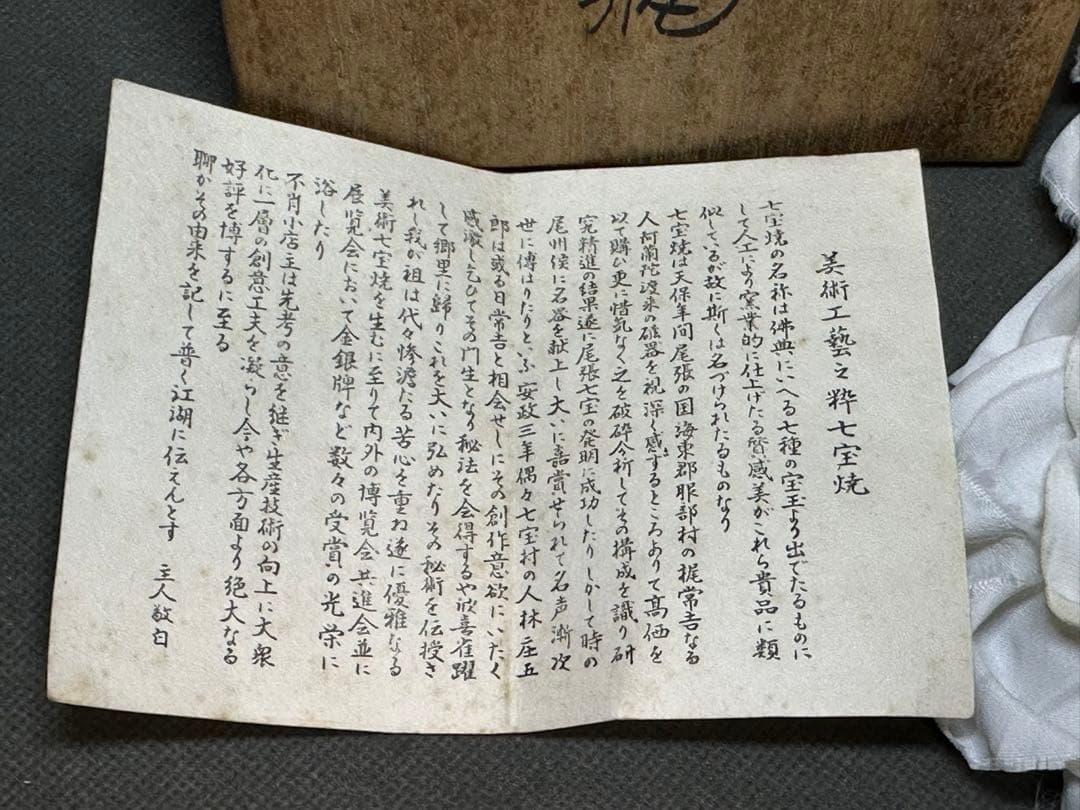 美術工藝之粋七宝焼
七宝焼の名称は佛典にいへる七種の宝玉より出でたるものに
して人工により窯業的に仕上げたる質感美がこれら貴品に類
似しているが故に斯くは名づけられたるものなり
七宝焼は天保年间尾張の国海東郡服部村の梶常吉なる
人阿蘭陀渡来の磁器を視深く感ずるところありて高価を
以て購ひ更に惜気なく之を破砕分析してその構成を識り研
究精進の結果遂に尾張七宝の発明に成功したりしかして時の
尾州侯に名器を献上し大いに嘉賞せられて名声漸次
世に傳はりたりといふ安政三年偶々七宝村の人林庄五
郎は或る日常吉と相会せしにその創作意欲にいたく
感激し乞ひてその門生となり秘法を会得するや欣喜雀躍
して郷里に歸りこれを大いに弘めたりその秘術を伝授さ
れし我が祖は代々惨澹たる苦心を重ね遂に優雅なる
美術七宝焼を生むに至りて内外の博覧会共進会並に
展覧会において金銀牌など数々の受賞の光栄に
浴したり
不肖小店主は先考の意を継ぎ生産技術の向上に大衆
化に一層の創意工夫を凝らし今や各方面より絶大なる
好評を博するに至る
聊かその由来を記して普く江湖に伝えんとす
主人敬白